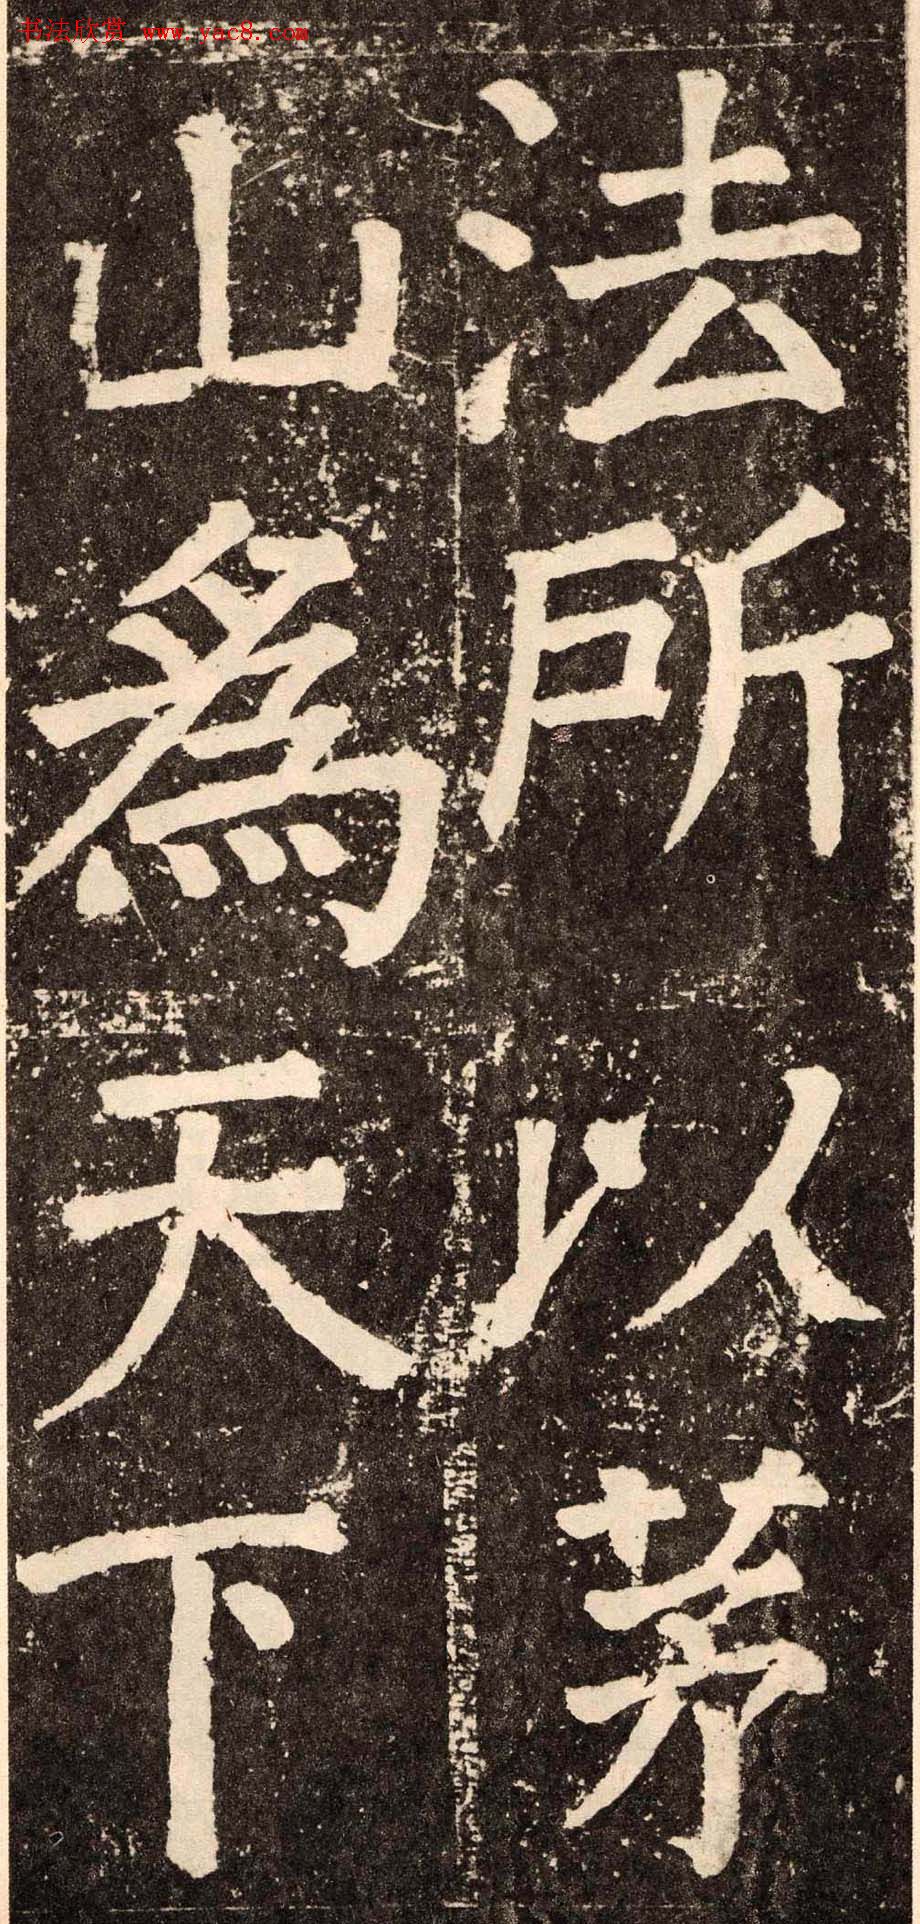 书法欣赏 www.yac8.com
法所以茅
山爲天下